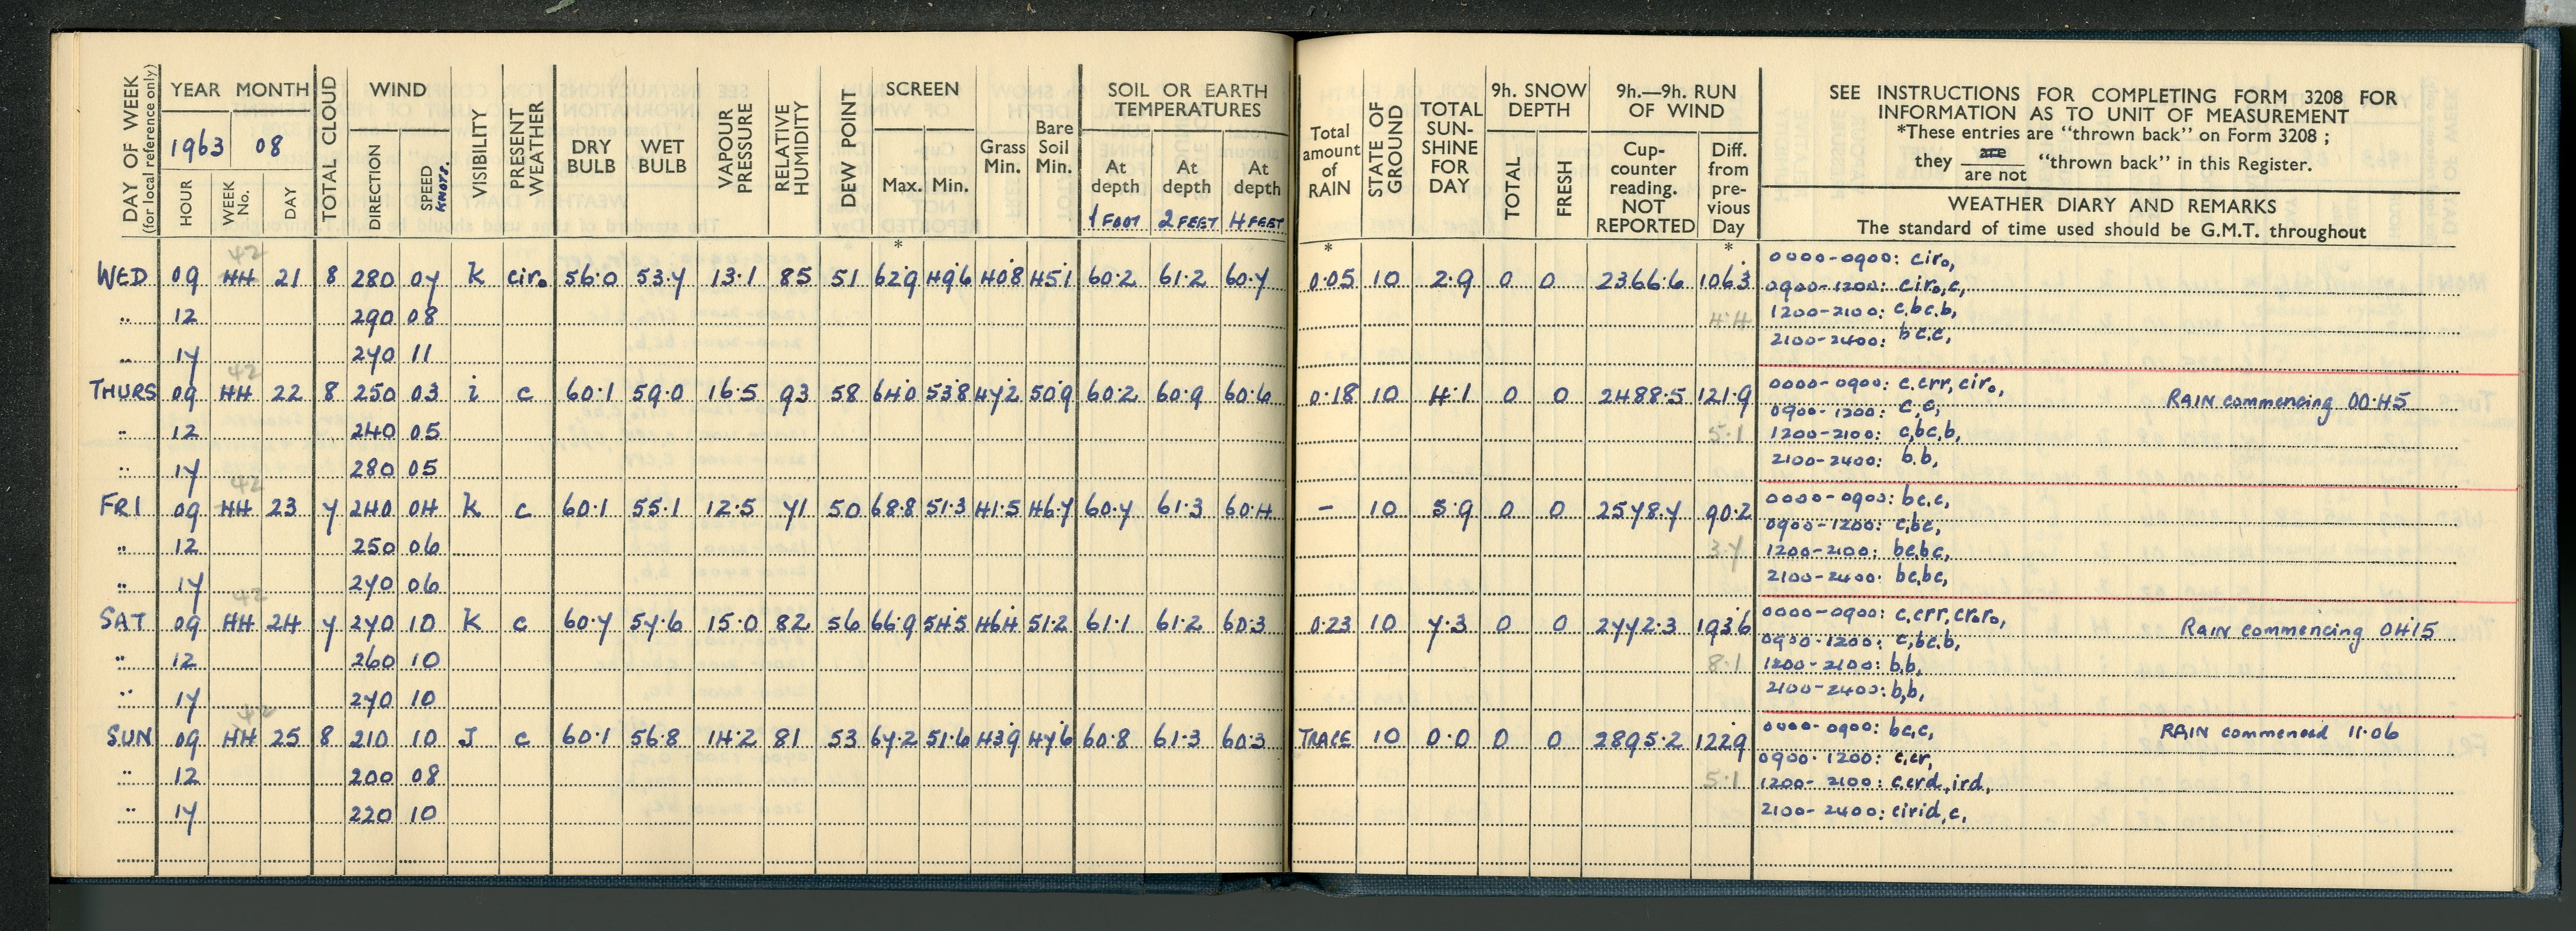 DAY OF WEEK (for local reference only)
YEAR MONTH
1963 08
HOUR WEEK No. DAY
TOTAL CLOUD
WIND
DIRECTION SPEED KNOTS.
VISIBILITY
PRESENT WEATHER
DRY BULB
WET BULB
VAPOUR PRESSURE
RELATIVE HUMIDITY
DEW POINT
SCREEN
Max. Min.
Grass Min.
Bare Soil Min.
SOIL OR EARTH TEMPERATURES
At depth 1 FOOT
At depth 2 FEET
At depth 4 FEET
Total amount of RAIN
STATE OF GROUND
TOTAL SUN-SHINE FOR DAY
9h. SNOW DEPTH
TOTAL FRESH
9h.—9h. RUN OF WIND
Cup-counter reading. NOT REPORTED
Diff. from pre-vious Day
SEE INSTRUCTIONS FOR COMPLETING FORM 3208 FOR
INFORMATION AS TO UNIT OF MEASUREMENT
*These entries are "thrown back" on Form 3208 ;
they are / are not "thrown back" in this Register.
WEATHER DIARY AND REMARKS
The standard of time used should be G.M.T. throughout
* * *
42
WED 09 44 21 8 280 07 K cir₀ 56.0 53.7 13.1 85 51 62.9 49.6 40.8 45.1 60.2 61.2 60.7 0.05 10 2.9 0 0 2366.6 106.3 0000-0900: cir₀,
0900-1200: cir₀,c,
" 12 290 08 4.4 1200-2100: c,bc.b,
" 17 270 11 2100-2400: bc.c,
42
THURS 09 44 22 8 250 03 i c 60.1 59.0 16.5 93 58 64.0 53.8 47.2 50.9 60.2 60.9 60.6 0.18 10 4.1 0 0 2488.5 121.9 0000-0900: c.crr,cir₀, RAIN commencing 00.45
0900-1200: c,c,
" 12 240 05 5.1 1200-2100: c,bc,b,
" 17 280 05 2100-2400: b.b,
42
FRI 09 44 23 7 240 04 K c 60.1 55.1 12.5 71 50 68.8 51.3 41.5 46.7 60.7 61.3 60.4 - 10 5.9 0 0 2578.7 90.2 0000-0900: bc,c,
0900-1200: c,bc,
" 12 250 06 3.7 1200-2100: bc,bc,
" 17 270 06 2100-2400: bc,bc,
42
SAT 09 44 24 7 270 10 K c 60.7 57.6 15.0 82 56 66.9 54.5 46.4 51.2 61.1 61.2 60.3 0.23 10 7.3 0 0 2772.3 193.6 0000-0900: c.crr,cr₀r₀, RAIN commencing 0415
0900-1200: c,bc.b,
" 12 260 10 8.1 1200-2100: b,b,
" 17 270 10 2100-2400: b,b,
42
SUN 09 44 25 8 210 10 J c 60.1 56.8 14.2 81 53 67.2 51.6 43.9 47.6 60.8 61.3 60.3 TRACE 10 0.0 0 0 2895.2 122.9 0000-0900: bc,c, RAIN commenced 11.06
0900-1200: c,cr,
" 12 200 08 5.1 1200-2100: c.crd,ird,
" 17 220 10 2100-2400: cirid,c,